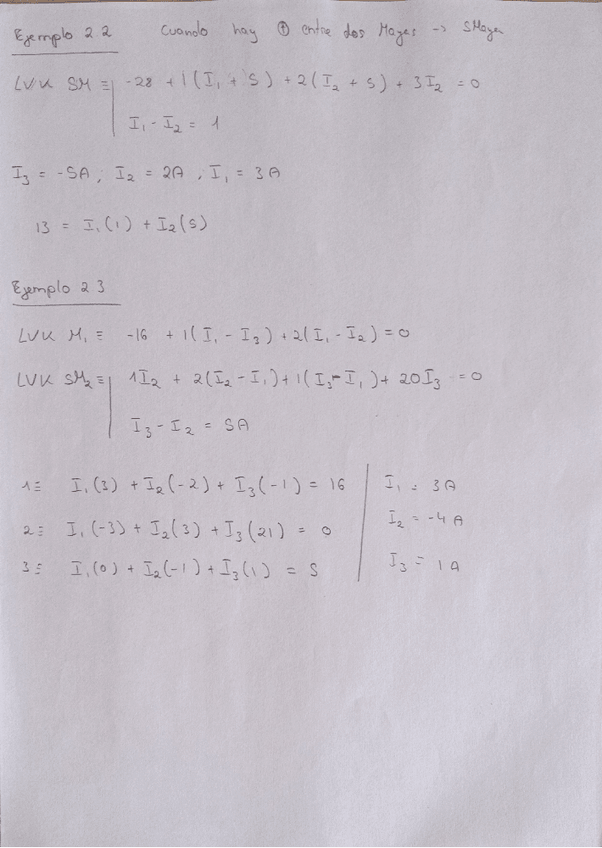 Ejemplo 2 2 Cuando hay ① entre dos Mayas -> SMaya
LVK SM ≡ -28 + 1(I₁ + 5) + 2(I₂ + 5) + 3I₂ = 0
I₁ - I₂ = 1
I₃ = -5A ; I₂ = 2A , I₁ = 3A
13 = I₁(1) + I₂(5)
Ejemplo 2 3
LVK M₁ ≡ -16 + 1(I₁ - I₃) + 2(I₁ - I₂) = 0
LVK SM₂ ≡ 1I₂ + 2(I₂ - I₁) + 1(I₃ - I₁) + 20I₃ = 0
I₃ - I₂ = 5A
1 ≡ I₁(3) + I₂(-2) + I₃(-1) = 16 I₁ = 3A
2 ≡ I₁(-3) + I₂(3) + I₃(21) = 0 I₂ = -4A
3 ≡ I₁(0) + I₂(-1) + I₃(1) = 5 I₃ = 1A